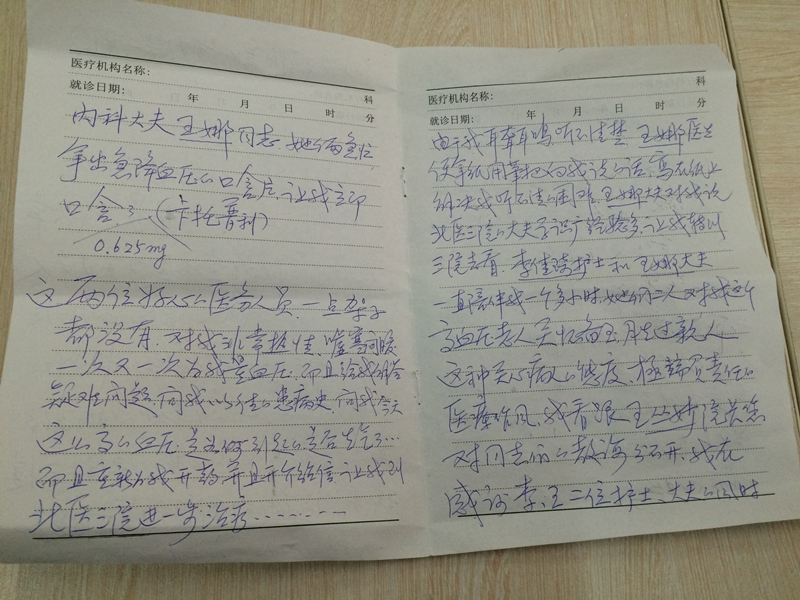 医疗机构名称:
科
就诊日期: 年 月 日 时 分
内科大夫王娜同志 她们
拿出急降血压的口含片 让我立即
口含 (卡托普利)
0.625mg
这两位好人的医务人员 一点架子
都没有 对我非常热情 嘘寒问暖
一次又一次为我量血压 而且给我解答
疑难问题 问我以往的患病史 问我今天
这么高的血压是为何引起的 是否生气了…
而且重新为我开药 并且开介绍信 让我到
北医三院进一步治疗………
科
医疗机构名称:
就诊日期: 年 月 日 时 分
由于我耳聋耳鸣听不清楚 王娜医生
便拿纸用笔把向我说的话 写在纸上
解决我听不清的困难 王娜大夫对我说
北医三院的大夫 经验多 让我转到
三院去看 李佳琦护士和王娜大夫
一直陪伴我一个多小时 她们二人对我这个
高血压老人关怀备至 胜过亲人
这种关心病人的态度 极端负责任的
医疗作风 我看跟王 院长您
对同志们的教诲分不开 我在
感谢李、王二位护士、大夫的同时